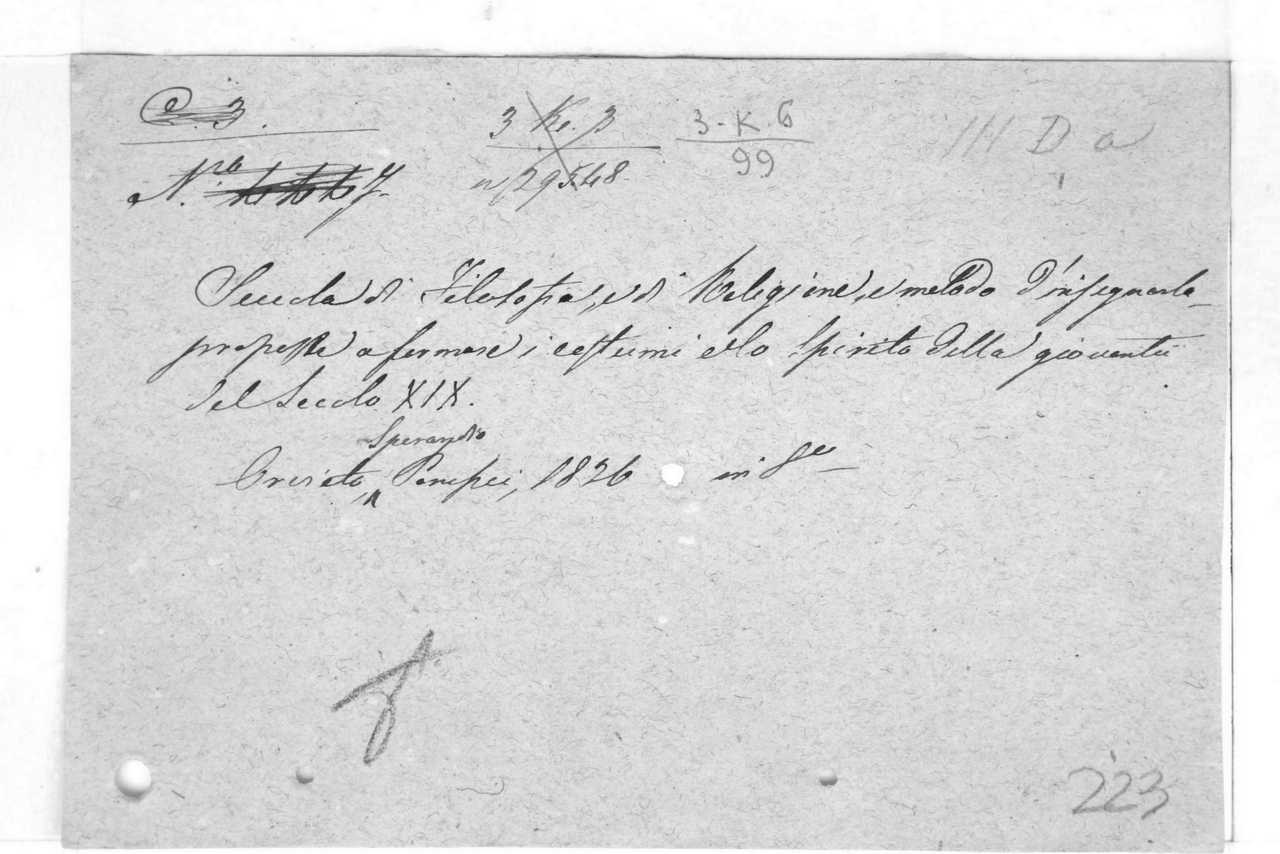 C. 3.
3 K. 3
3-K.6
III D a
N.ro
n/29548
99
Scuola di Filosofia, e di Religione, e metodo d'insegnarla
proposte a formare i costumi e lo Spirito della gioventù
del Secolo XIX.
Sperandio
Orvieto Pompei, 1826 in 8vo
223